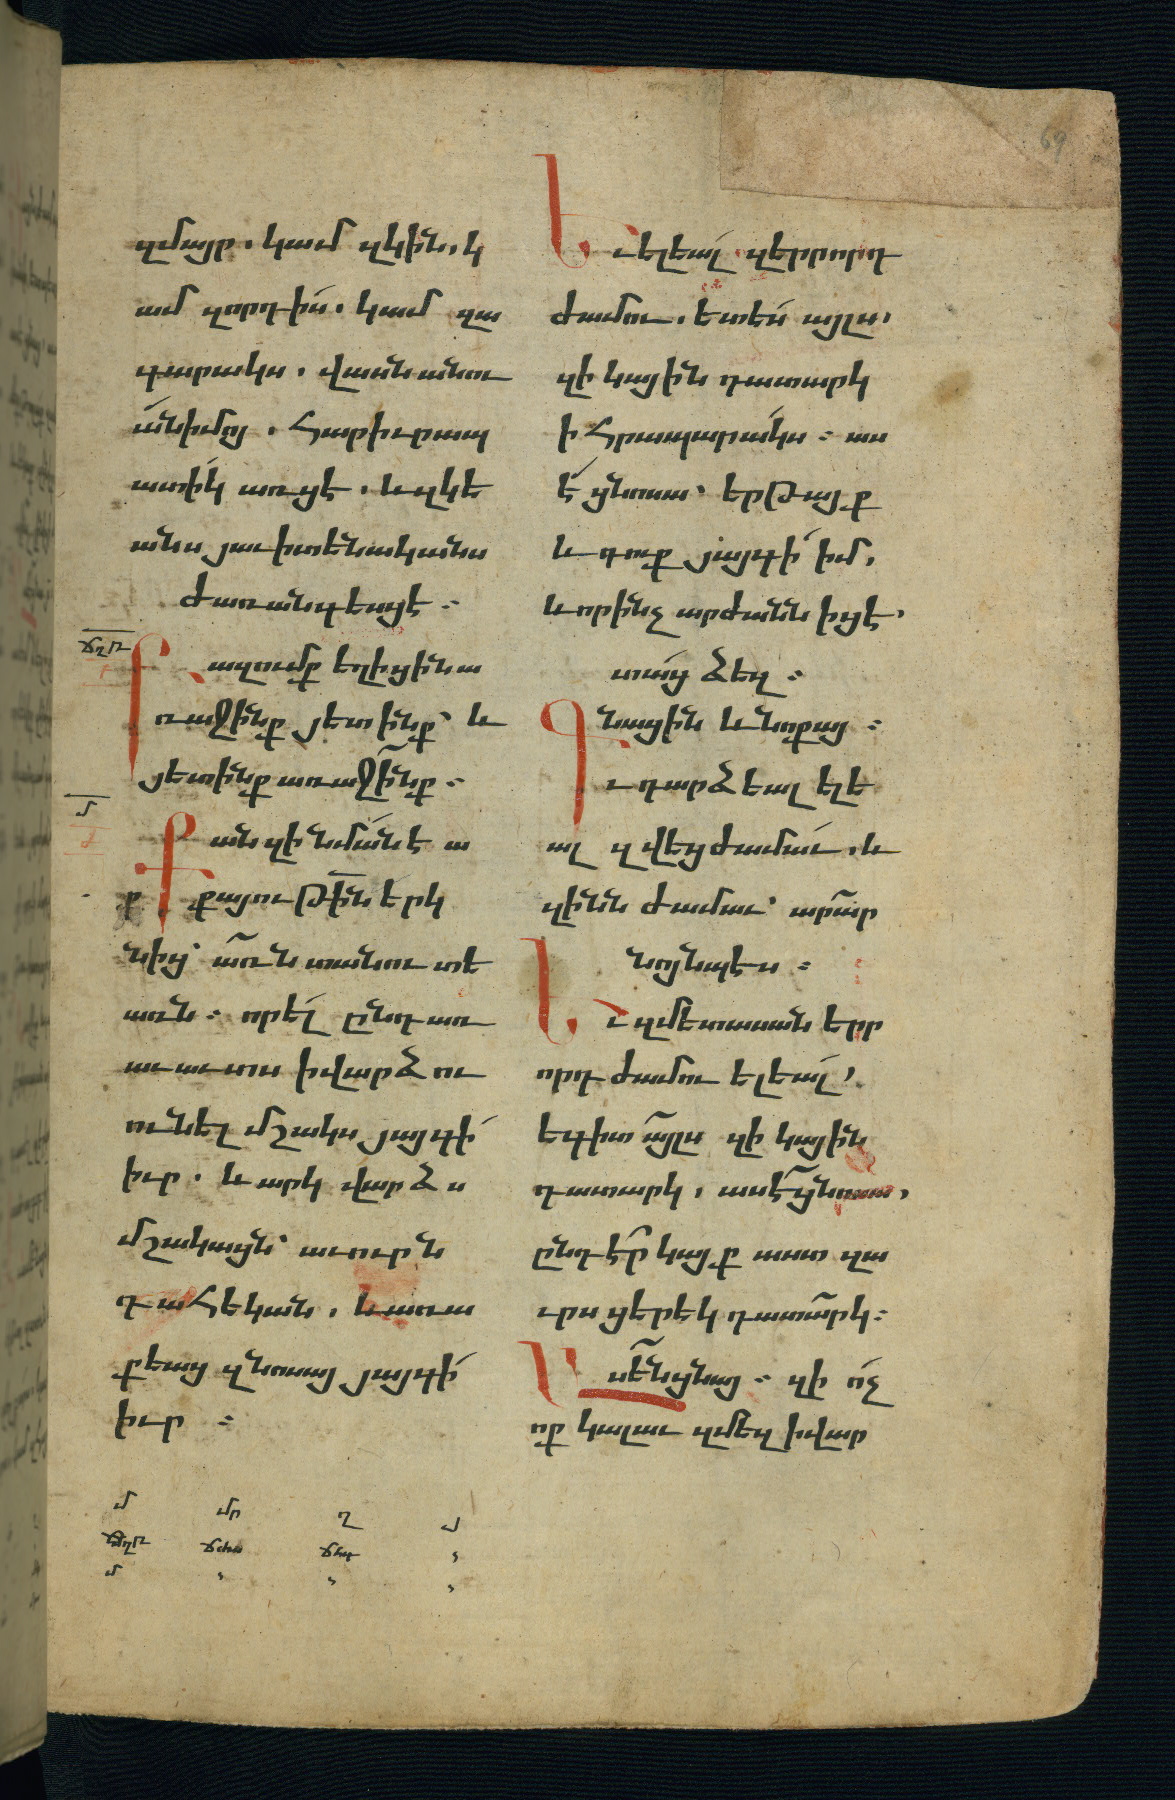 69
զմայր . կամ զկին . կ
ամ զորդիս . կամ զա
գարակս . վասն անու
անիմոյ . հարիւրապ
ատիկ առցէ . և զկե
անս յաւիտենականս
ժառանգեսցէ :
ճղռ
Բազումք եղիցին ա
ռաջինք յետինք՝ և
յետինք առաջինք :
մ
Քանզի նման է ա
րքայութի՟ն երկ
նից՝ առն տանու տէ
առն : որ էլ ընդ առ
աւաւտս ի վարձու
ունել մշակս յայգի
իւր . և արկ վարձս
մշակացն՝ աւուրն
դահեկան . և առա
քեաց զնոսայ յայգի
իւր :
Եւ ելեալ զերրորդ
ժամու . ետես այլս՝
զի կային դատարկ
ի հրապարակս : աս
է ցնոսա՝ երթայք
և դուք յայգի իմ,
և որինչ արժանն իցէ՝
տաց ձեզ :
Գնացին և նոքայ :
ւ դարձեալ ելե
ալ զվեցժամաւ . և
զինն ժամաւ՝ արա՟ր
նոյնպէս :
Եւ զմետասաներր
որդ ժամու ելեալ՝
եգիտ այլս զի կային
դատարկ, ասէ ցնոսա,
ընդէր կայք աստ զա
ւրս ցերեկ դատարկ :
Ասեն ցնայ : զի ոչ
ոք կալաւ զմեզ ի վար
մ մր ղ
ճղռ
մ